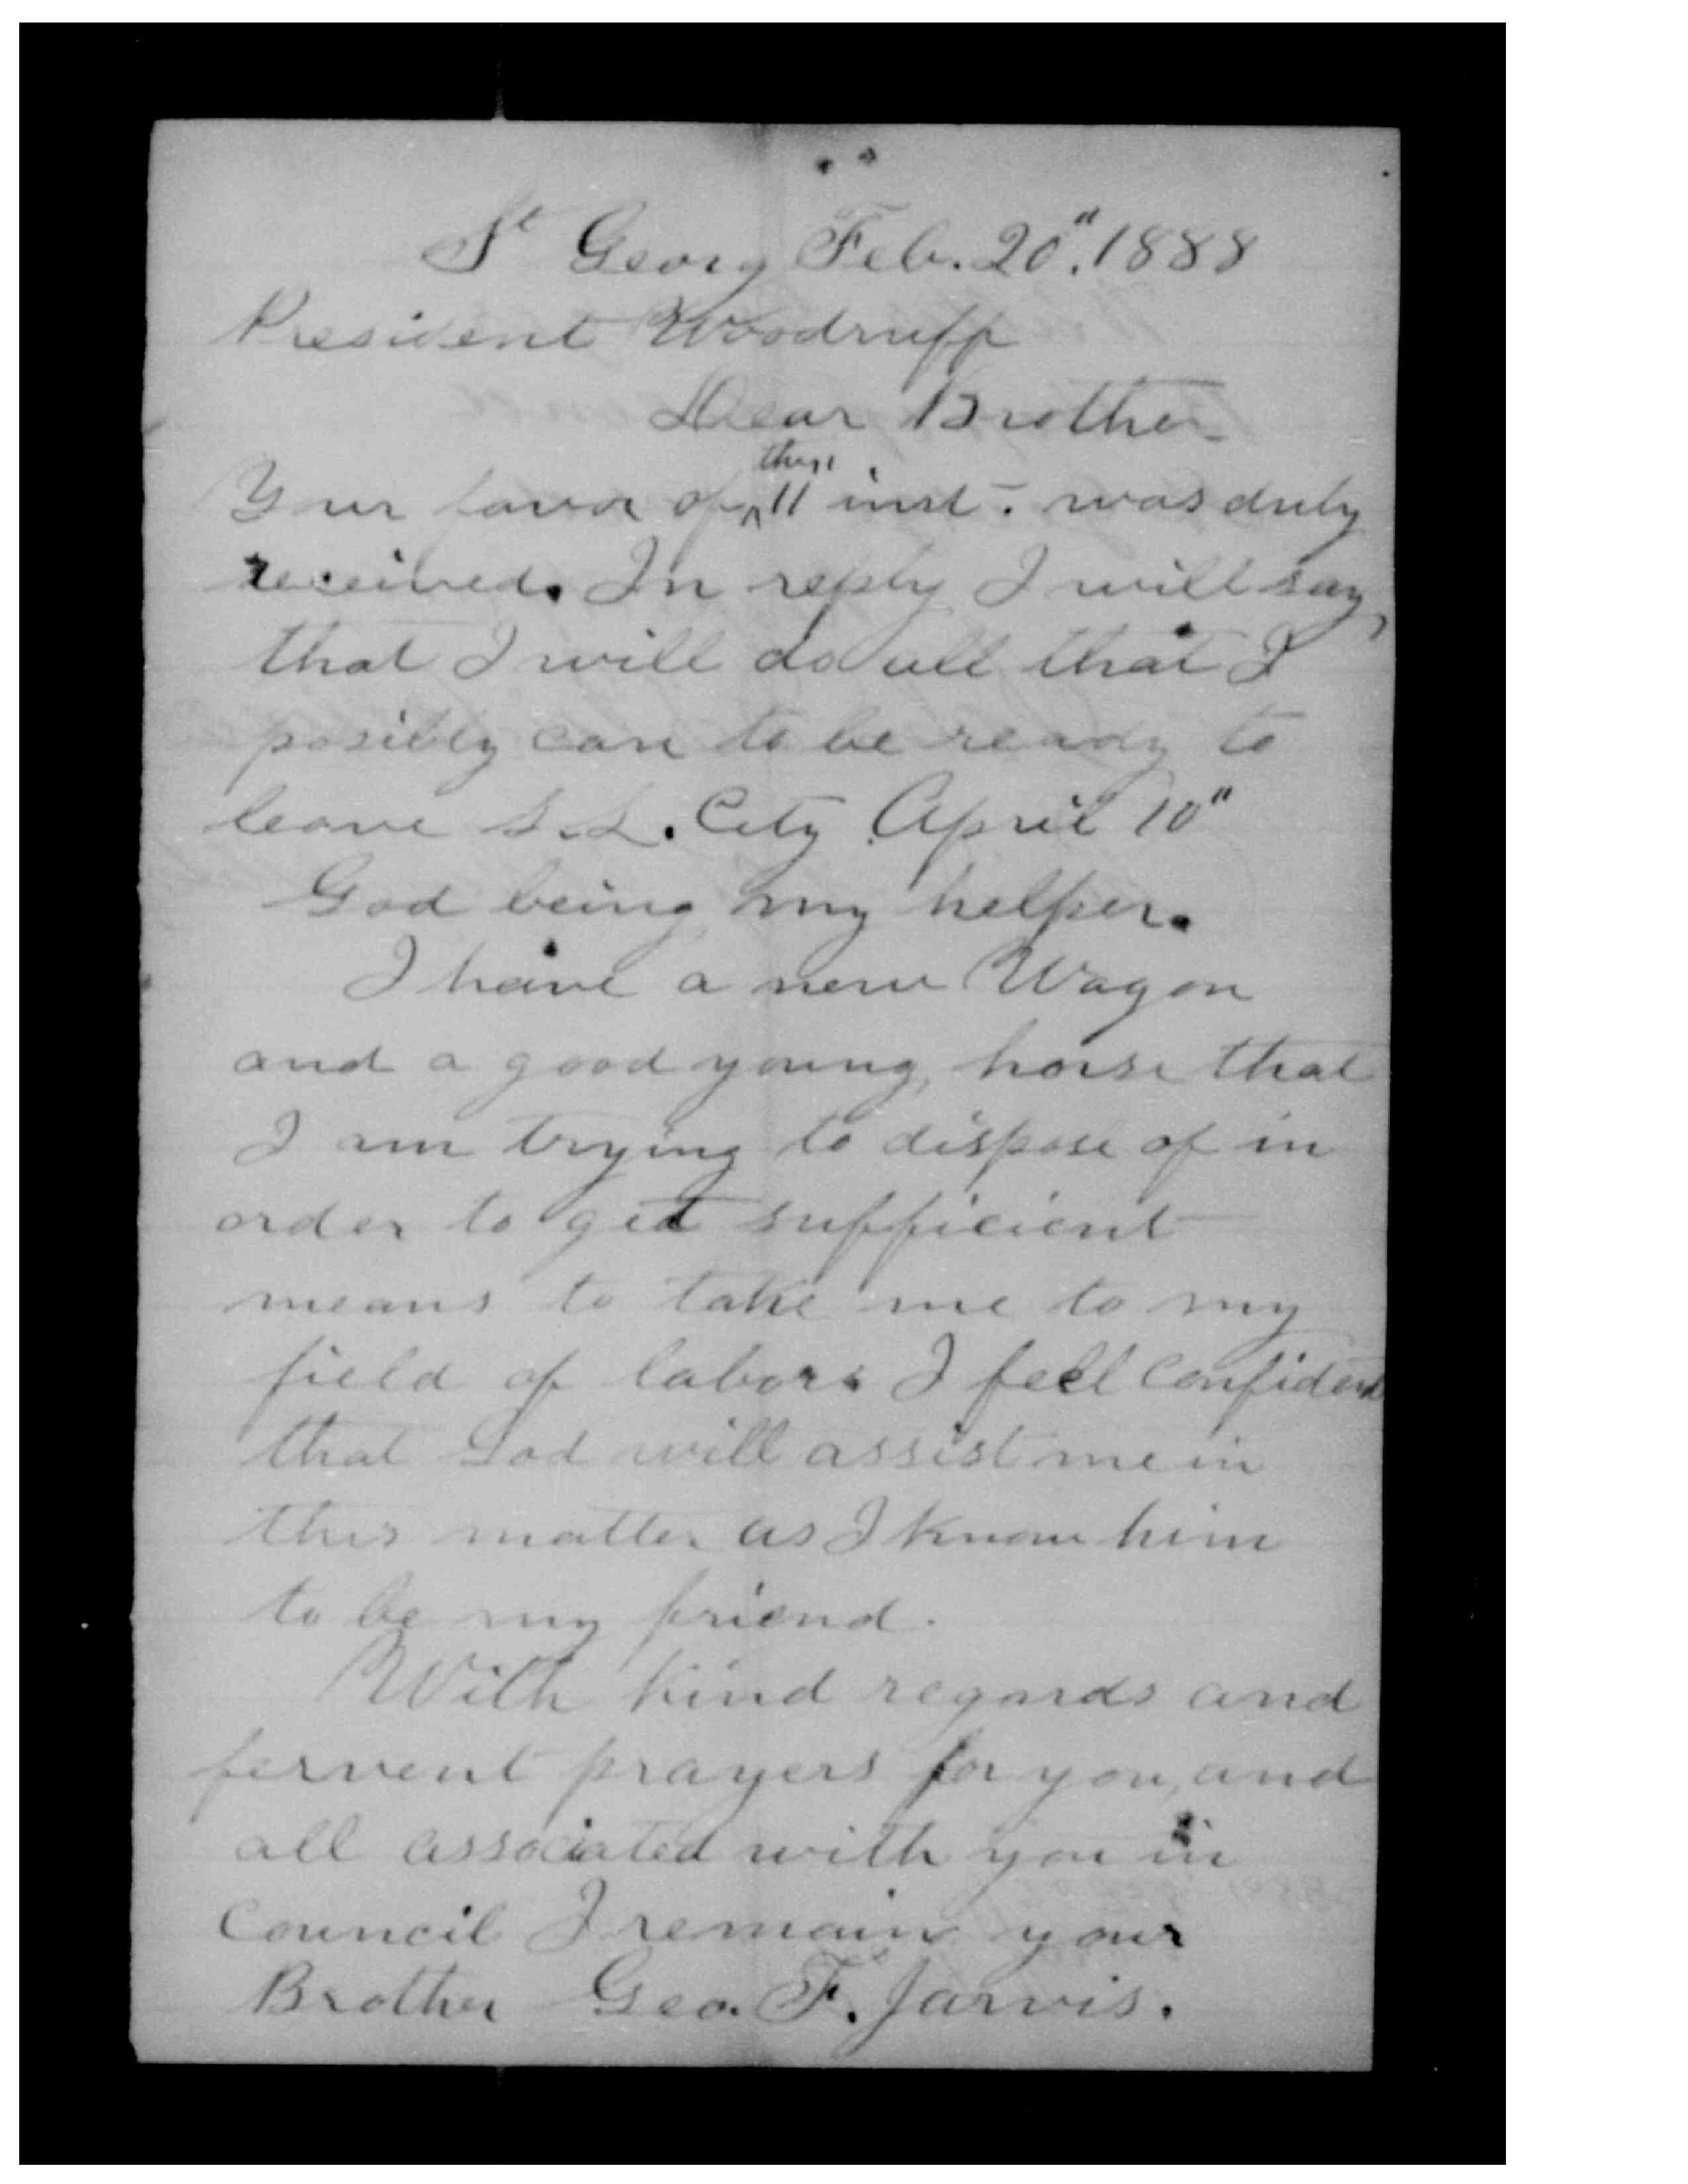 St Georg Feb. 20". 1888
President Woodruff
Dear Brother
the
Your favor of ^ 11 inst. was duly
received. In reply I will say,
that I will do all that I
posibly can to be ready to
leave S. L. City April 10"
God being my helper.
I have a new Wagon
and a good young, horse that
I am trying to dispose of in
order to get sufficient
means to take me to my
field of labor. I feel Confident
that God will assist me in
this matter as I know him
to be my friend.
With kind regards and
fervent prayers for you, and
all associated with you in
Council I remain your
Brother Geo. F. Jarvis.